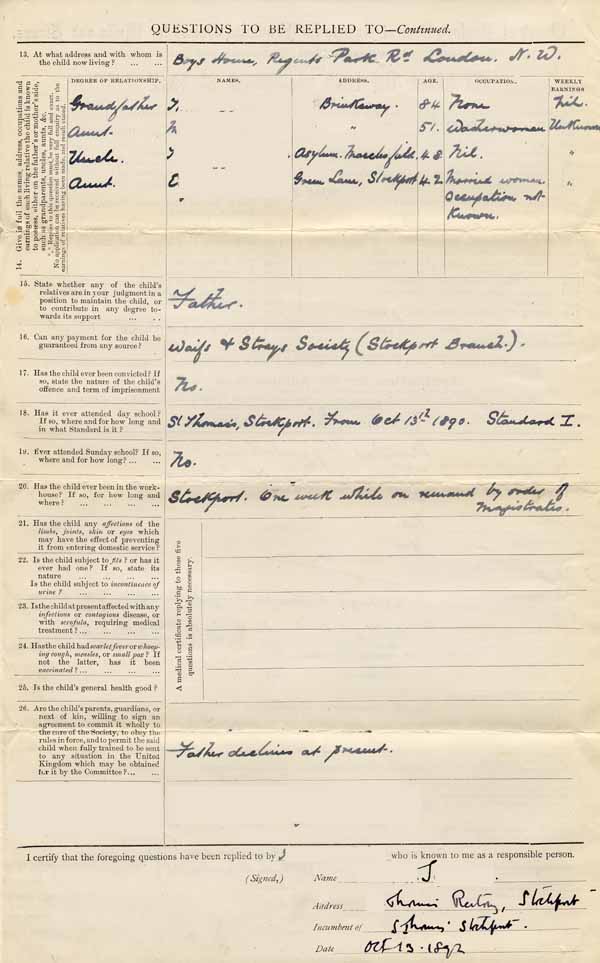 QUESTIONS TO BE REPLIED TO—Continued.
13. At what address and with whom is
the child now living? ... ...
Boys Home, Regents Park Rd London. N. W.
14. Give in full the names, address, occupations and
earnings of each living relative the child is known
to possess, either on the father's or mother's side,
such as grandparents, uncles, aunts, &c.
*** Replies to this question must be very full and exact.
No application can be received without full enquiry as to the
earnings of relatives having been made, and result stated.
DEGREE OF RELATIONSHIP. NAMES. ADDRESS. AGE. OCCUPATION. WEEKLY
EARNINGS
Grandfather T, -- Brinksway. 84 None Nil.
Aunt. M " 51. Washerwoman Unknown
Uncle. T . Asylum. Macclesfield. 48. Nil. "
Aunt. E Green Lane, Stockport 42 Married woman "
" Occupation not
Known.
15. State whether any of the child's
relatives are in your judgment in a
position to maintain the child, or
to contribute in any degree to-
wards its support ... ..
Father.
16. Can any payment for the child be
guaranteed from any source?
Waifs & Strays Society (Stockport Branch.).
17. Has the child ever been convicted? If
so, state the nature of the child's
offence and term of imprisonment
No.
18. Has it ever attended day school?
If so, where and for how long and
in what Standard is it?
St Thomas's, Stockport. From Oct 13th 1890. Standard I.
19. Ever attended Sunday school? If so,
where and for how long? ... ...
No.
20. Has the child ever been in the work-
house? If so, for how long and
where? ... ... ... ...
Stockport. One week while on remand by order of
Magistrates.
21. Has the child any affections of the
limbs, joints, skin or eyes which
may have the effect of preventing
it from entering domestic service?
22. Is the child subject to fits? or has it
ever had one? If so, state its
nature ... ... ... ...
Is the child subject to incontinence of
urine? ... ... ... ...
23. Is the child at present affected with any
infectious or contagious disease, or
with scrofula, requiring medical
treatment? ... ... ... ...
24. Has the child had scarlet fever or whoop-
ing cough, measles, or small pox? If
not the latter, has it been
vaccinated? ... ... ... ...
25. Is the child's general health good?
A medical certificate replying to these five
questions is absolutely necessary.
26. Are the child's parents, guardians, or
next of kin, willing to sign an
agreement to commit it wholly to
the care of the Society, to obey the
rules in force, and to permit the said
child when fully trained to be sent
to any situation in the United
Kingdom which may be obtained
for it by the Committee? ... ...
Father declines at present.
I certify that the foregoing questions have been replied to by J who is known to me as a responsible person.
(Signed,) Name J .
Address Thomas' Rectory, Stockport
Incumbent of S Thomas' Stockport.
Date Oct 13. 1892